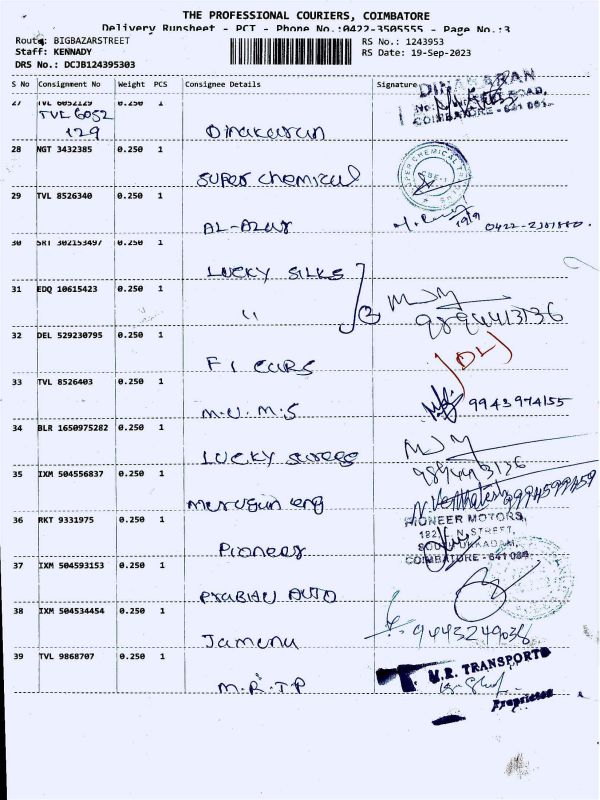 THE PROFESSIONAL COURIERS, COIMBATORE
Delivery Runsheet - PCT - Phone No.:0422-3505555 - Page No.:3
Route: BIGBAZARSTREET
Staff: KENNADY
DRS No.: DCJB124395303
RS No.: 1243953
RS Date: 19-Sep-2023
S No Consignment No Weight PCS Consignee Details Signature
27 TVL 6052129 0.250 1
TVL 6052
129
Dinakaran
DINAKARAN
ROAD,
COIMBATORE - 641 001.
28 NGT 3432385 0.250 1
super chemical
SUPER CHEMICAL
CBE-1
29 TVL 8526340 0.250 1
AL-Azar
19/9
30 SRT 302153497 0.250 1
LUCKY SILKS
31 EDQ 10615423 0.250 1
"
9894413136
32 DEL 529230795 0.250 1
F1 CARS
(DL)
33 TVL 8526403 0.250 1
M.U.M.S
9943974155
34 BLR 1650975282 0.250 1
LUCKY
35 IXM 504556837 0.250 1
Murugan eng
9994599459
36 RKT 9331975 0.250 1
Pioneer
PIONEER MOTORS,
N. STREET,
COIMBATORE - 641 001
37 IXM 504593153 0.250 1
PRABHU AUTO
38 IXM 504534454 0.250 1
Jamuna
9443249038
39 TVL 9868707 0.250 1
M.R.TP
M.R. TRANSPORTS
Proprietor